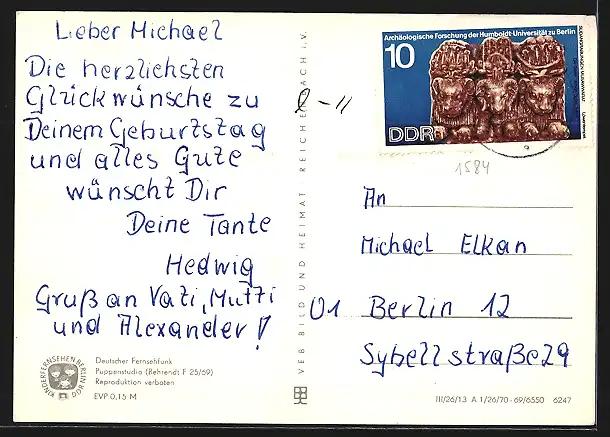 Lieber Michael
Die herzlichsten
Glückwünsche zu
Deinem Geburtstag
und alles Gute
wünscht Dir
Deine Tante
Hedwig
Gruß an Vati, Mutti
und Alexander!
KINDERFERNSEHEN BERLIN
DDR
Deutscher Fernsehfunk
Puppenstudio (Behrendt F 25/69)
Reproduktion verboten
EVP 0,15 M
VEB BILD UND HEIMAT REICHENBACH I. V.
Archäologische Forschung der Humboldt-Universität zu Berlin
10
DDR
1584
An
Michael Elkan
01 Berlin 12
Sybellstraße 29
III/26/13 A 1/26/70 - 69/6550 6247